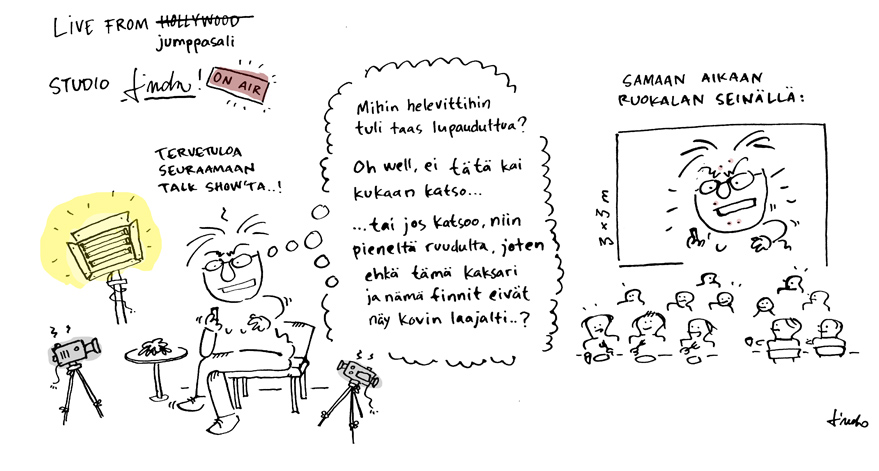 LIVE FROM HOLLYWOOD
jumppasali
STUDIO finho!
ON AIR
TERVETULOA
SEURAAMAAN
TALK SHOW'TA..!
Mihin helevittihin
tuli taas lupauduttua?
Oh well, ei tätä kai
kukaan katso...
...tai jos katsoo, niin
pieneltä ruudulta, joten
ehkä tämä kaksari
ja nämä finnit eivät
näy kovin laajalti..?
SAMAAN AIKAAN
RUOKALAN SEINÄLLÄ:
3 x 3 m